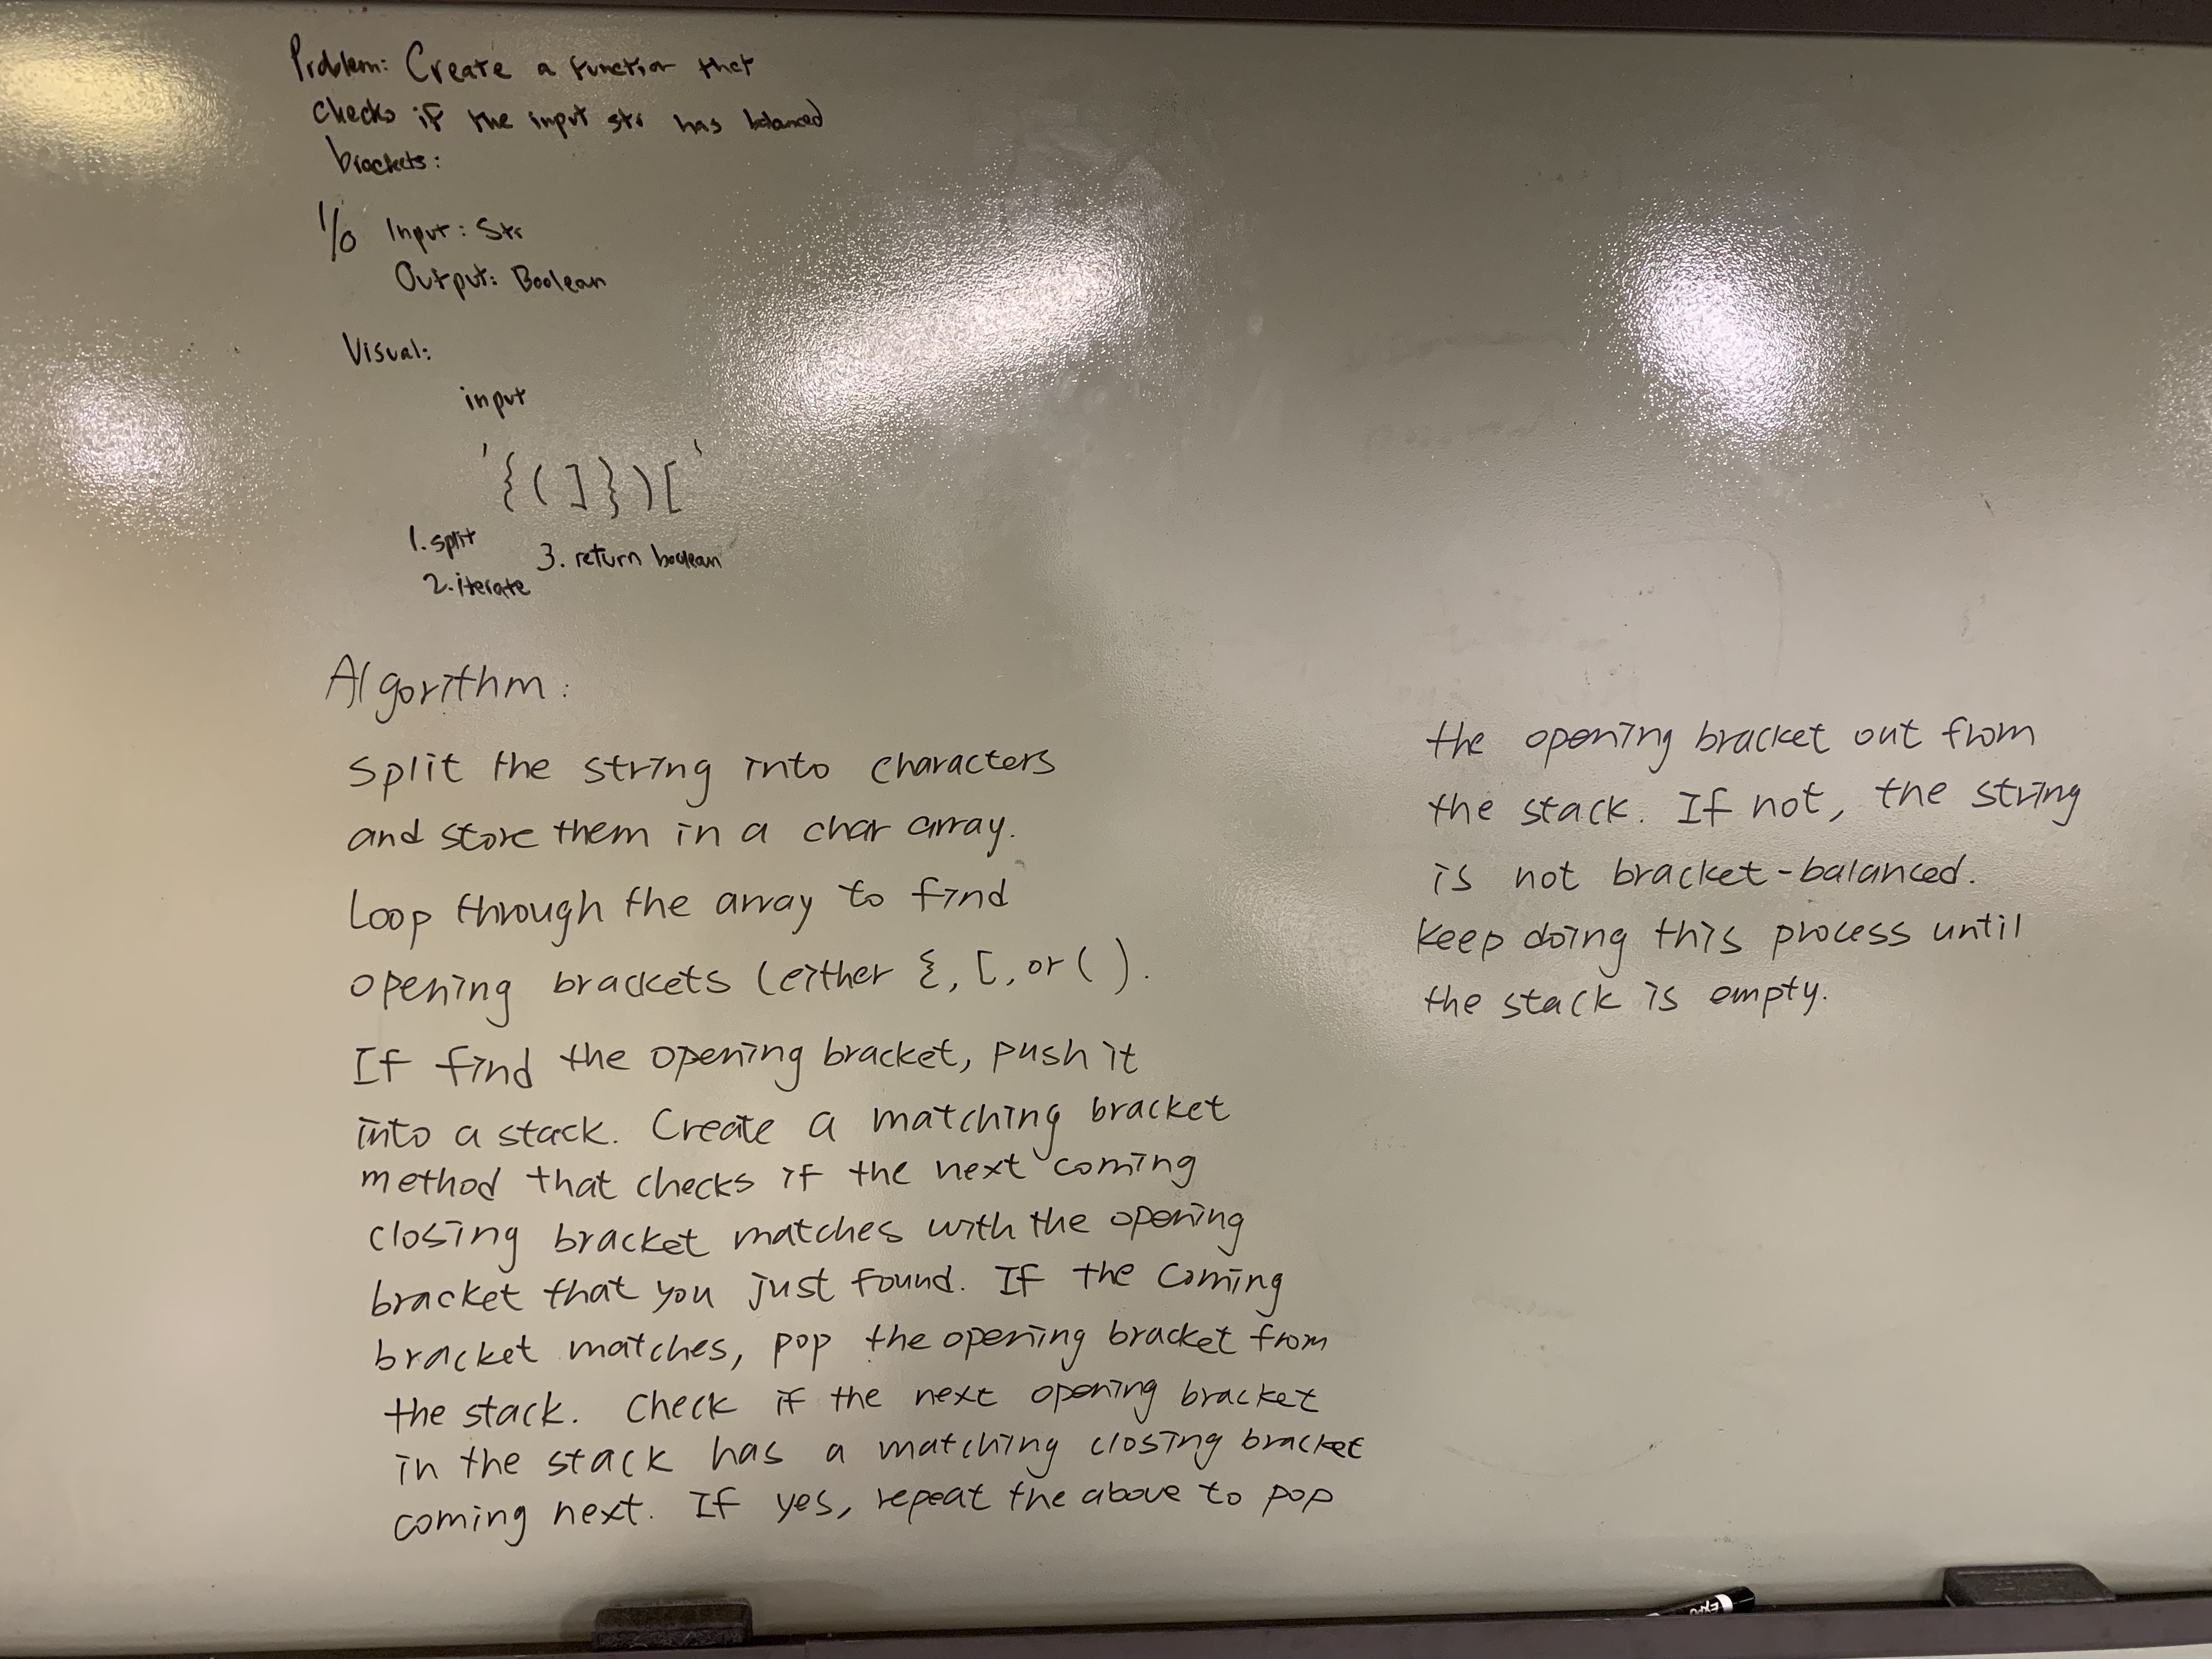 Problem: Create a function that
checks if the input str has balanced
brackets:
I/O Input: Str
Output: Boolean
Visual:
input
'{(]})['
1. split
2. iterate
3. return boolean
Algorithm:
split the string into characters
and store them in a char array.
Loop through the array to find
opening brackets (either {, [, or ( ).
If find the opening bracket, push it
into a stack. Create a matching bracket
method that checks if the next coming
closing bracket matches with the opening
bracket that you just found. If the coming
bracket matches, pop the opening bracket from
the stack. Check if the next opening bracket
in the stack has a matching closing bracket
coming next. If yes, repeat the above to pop
the opening bracket out from
the stack. If not, the string
is not bracket-balanced.
keep doing this process until
the stack is empty.
EXPO